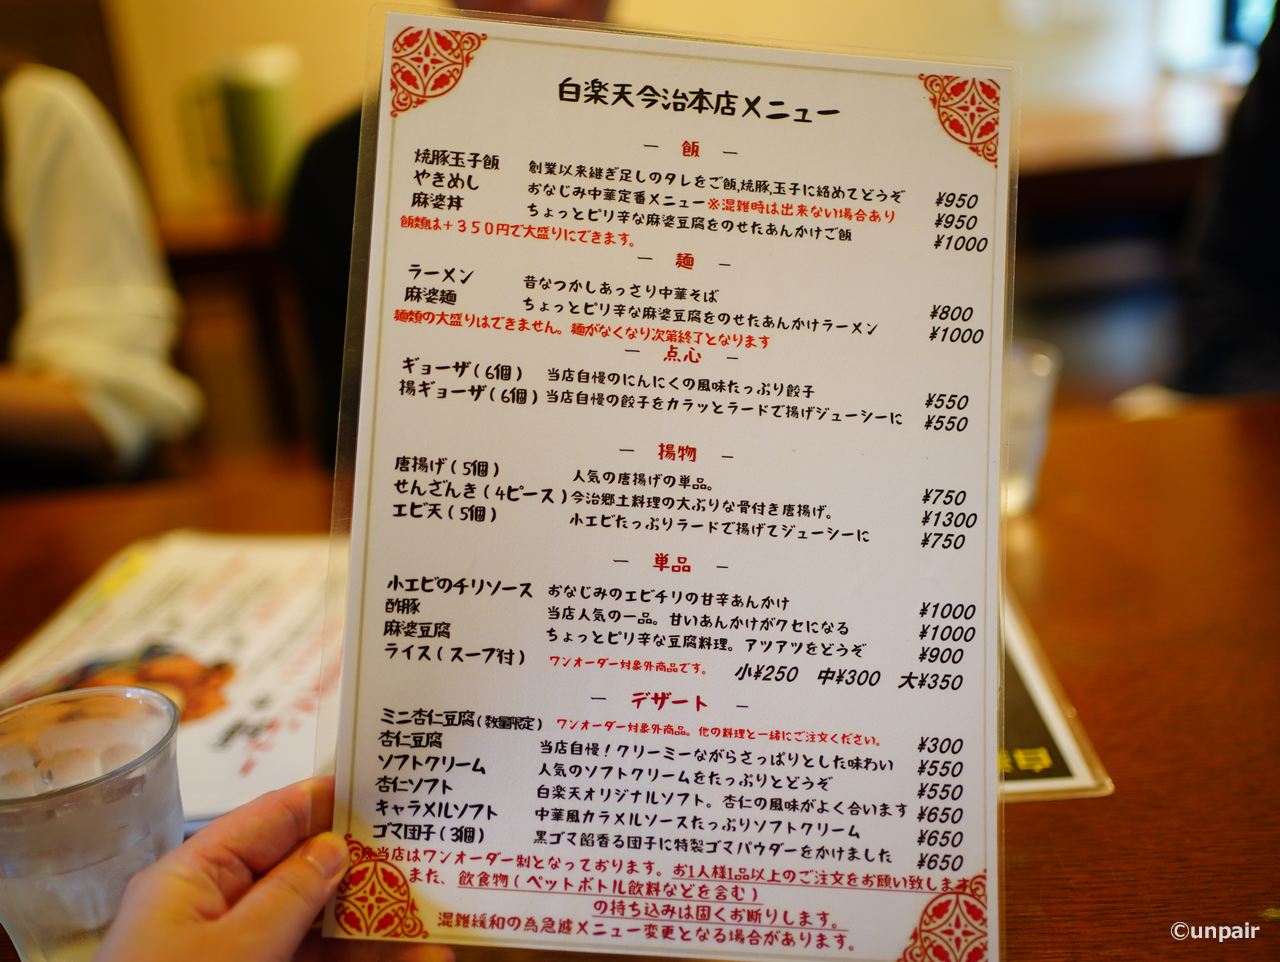 白楽天今治本店メニュー
— 飯 —
焼豚玉子飯 創業以来継ぎ足しのタレをご飯,焼豚,玉子に絡めてどうぞ ¥950
やきめし おなじみ中華定番メニュー※混雑時は出来ない場合あり ¥950
麻婆丼 ちょっとピリ辛な麻婆豆腐をのせたあんかけご飯 ¥1000
飯類は＋３５０円で大盛りにできます。
— 麺 —
ラーメン 昔なつかしあっさり中華そば ¥800
麻婆麺 ちょっとピリ辛な麻婆豆腐をのせたあんかけラーメン ¥1000
麺類の大盛りはできません。麺がなくなり次第終了となります
— 点心 —
ギョーザ(6個) 当店自慢のにんにくの風味たっぷり餃子 ¥550
揚ギョーザ(6個) 当店自慢の餃子をカラッとラードで揚げジューシーに ¥550
— 揚物 —
唐揚げ(5個) 人気の唐揚げの単品。 ¥750
せんざんき(4ピース) 今治郷土料理の大ぶりな骨付き唐揚げ。 ¥1300
エビ天(5個) 小エビたっぷりラードで揚げてジューシーに ¥750
— 単品 —
小エビのチリソース おなじみのエビチリの甘辛あんかけ ¥1000
酢豚 当店人気の一品。甘いあんかけがクセになる ¥1000
麻婆豆腐 ちょっとピリ辛な豆腐料理。アツアツをどうぞ ¥900
ライス(スープ付) ワンオーダー対象外商品です。 小¥250 中¥300 大¥350
— デザート —
ミニ杏仁豆腐(数量限定) ワンオーダー対象外商品。他の料理と一緒にご注文ください。 ¥300
杏仁豆腐 当店自慢！クリーミーながらさっぱりとした味わい ¥550
ソフトクリーム 人気のソフトクリームをたっぷりとどうぞ ¥550
杏仁ソフト 白楽天オリジナルソフト。杏仁の風味がよく合います ¥650
キャラメルソフト 中華風カラメルソースたっぷりソフトクリーム ¥650
ゴマ団子(3個) 黒ゴマ餡香る団子に特製ゴマパウダーをかけました ¥650
※当店はワンオーダー制となっております。お1人様1品以上のご注文をお願い致します。
また、飲食物(ペットボトル飲料などを含む)
の持ち込みは固くお断りします。
混雑緩和の為急遽メニュー変更となる場合があります。
©unpair